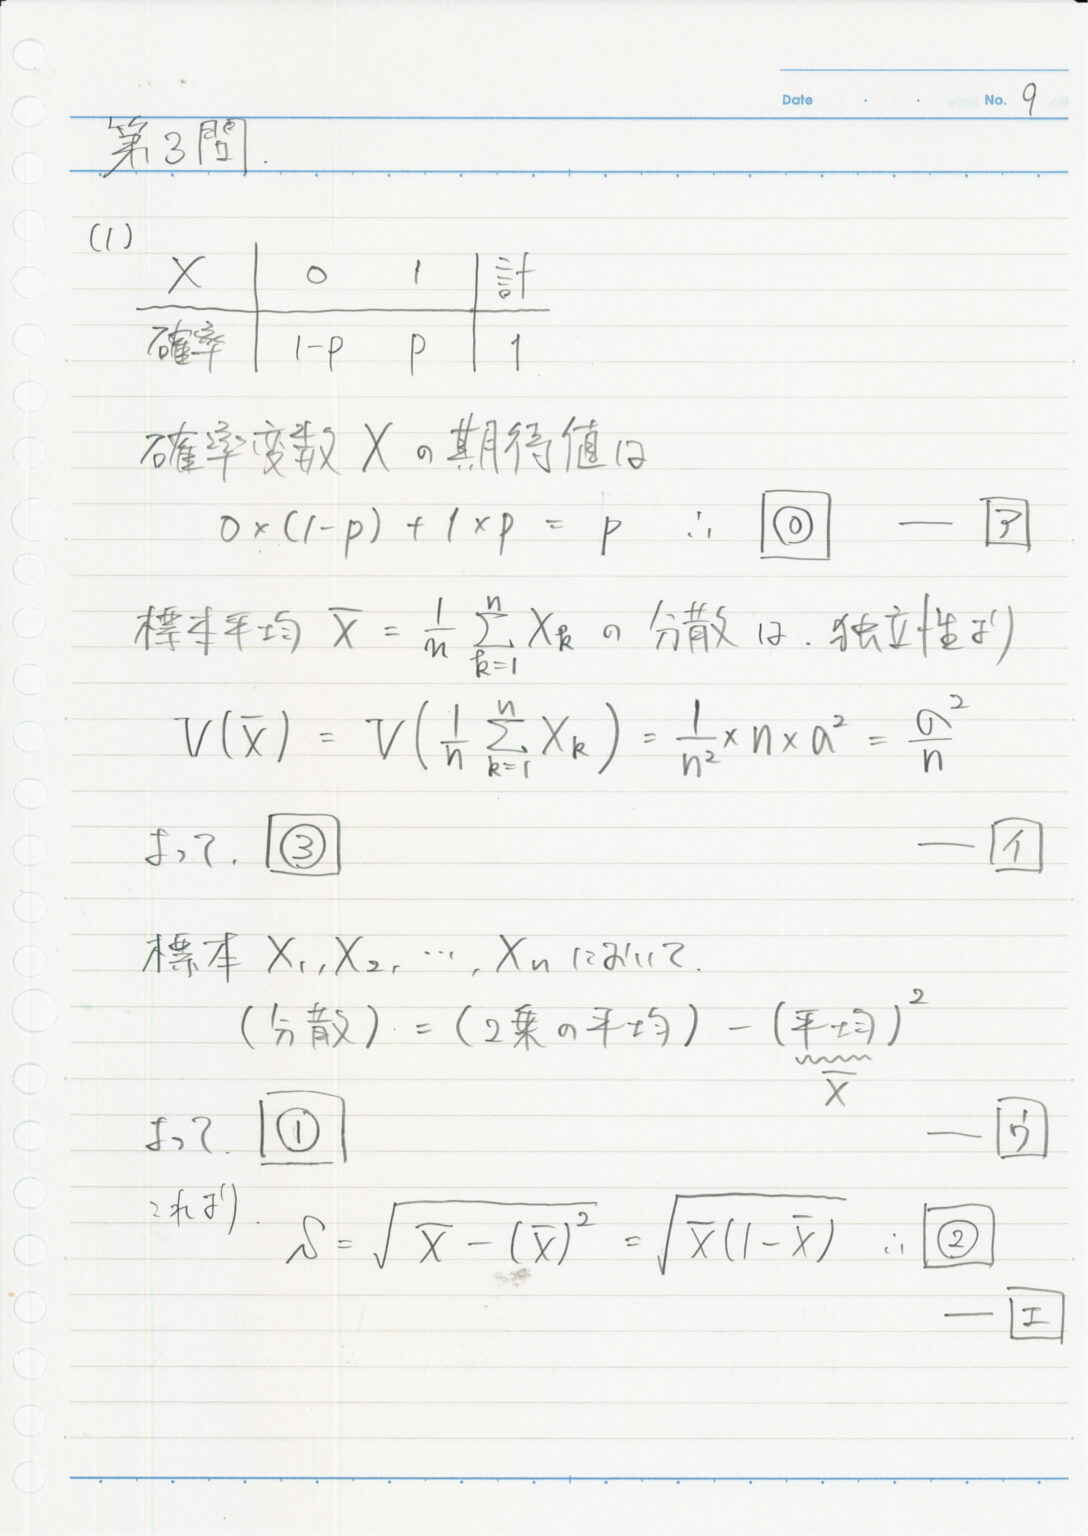 Date No. 9
第3問.
(1)
X 0 1 計
確率 1-p p 1
確率変数 X の期待値は
0×(1-p) + 1×p = p ∴ ⓪ — ア
標本平均 X̄ = 1/n Σ_{k=1}^{n} X_k の分散は、独立性より
V(X̄) = V(1/n Σ_{k=1}^{n} X_k) = 1/n² × n × σ² = σ²/n
よって、③ — イ
標本 X₁, X₂, …, Xn において、
(分散) = (2乗の平均) - (平均)²
X̄
よって、① — ウ
これより、
S = √(X̄ - (X̄)²) = √(X̄(1-X̄)) ∴ ②
— エ